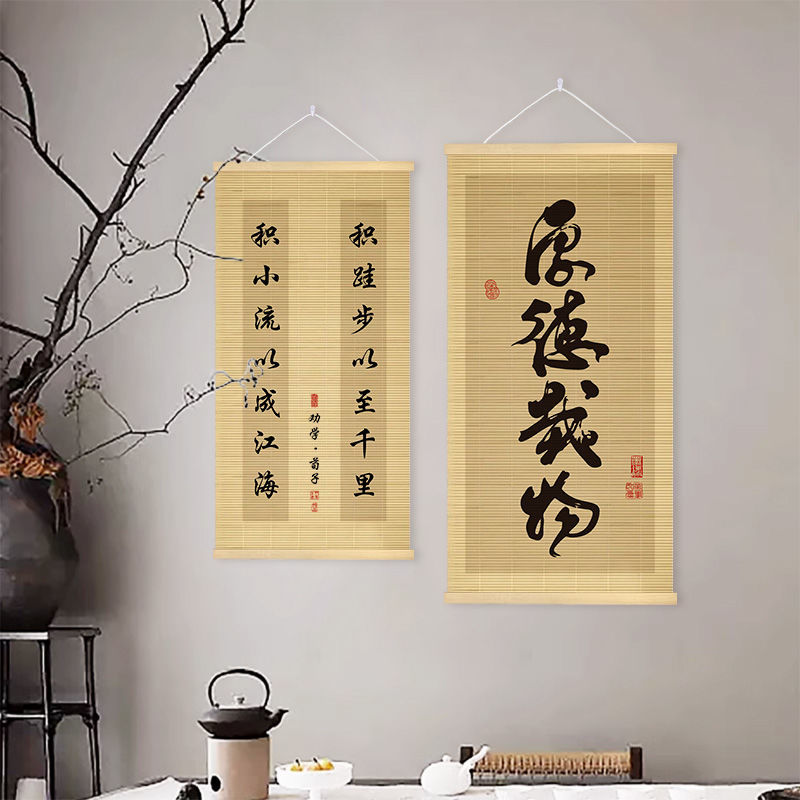 积跬步以至千里
劝学·荀子
积小流以成江海
厚德载物